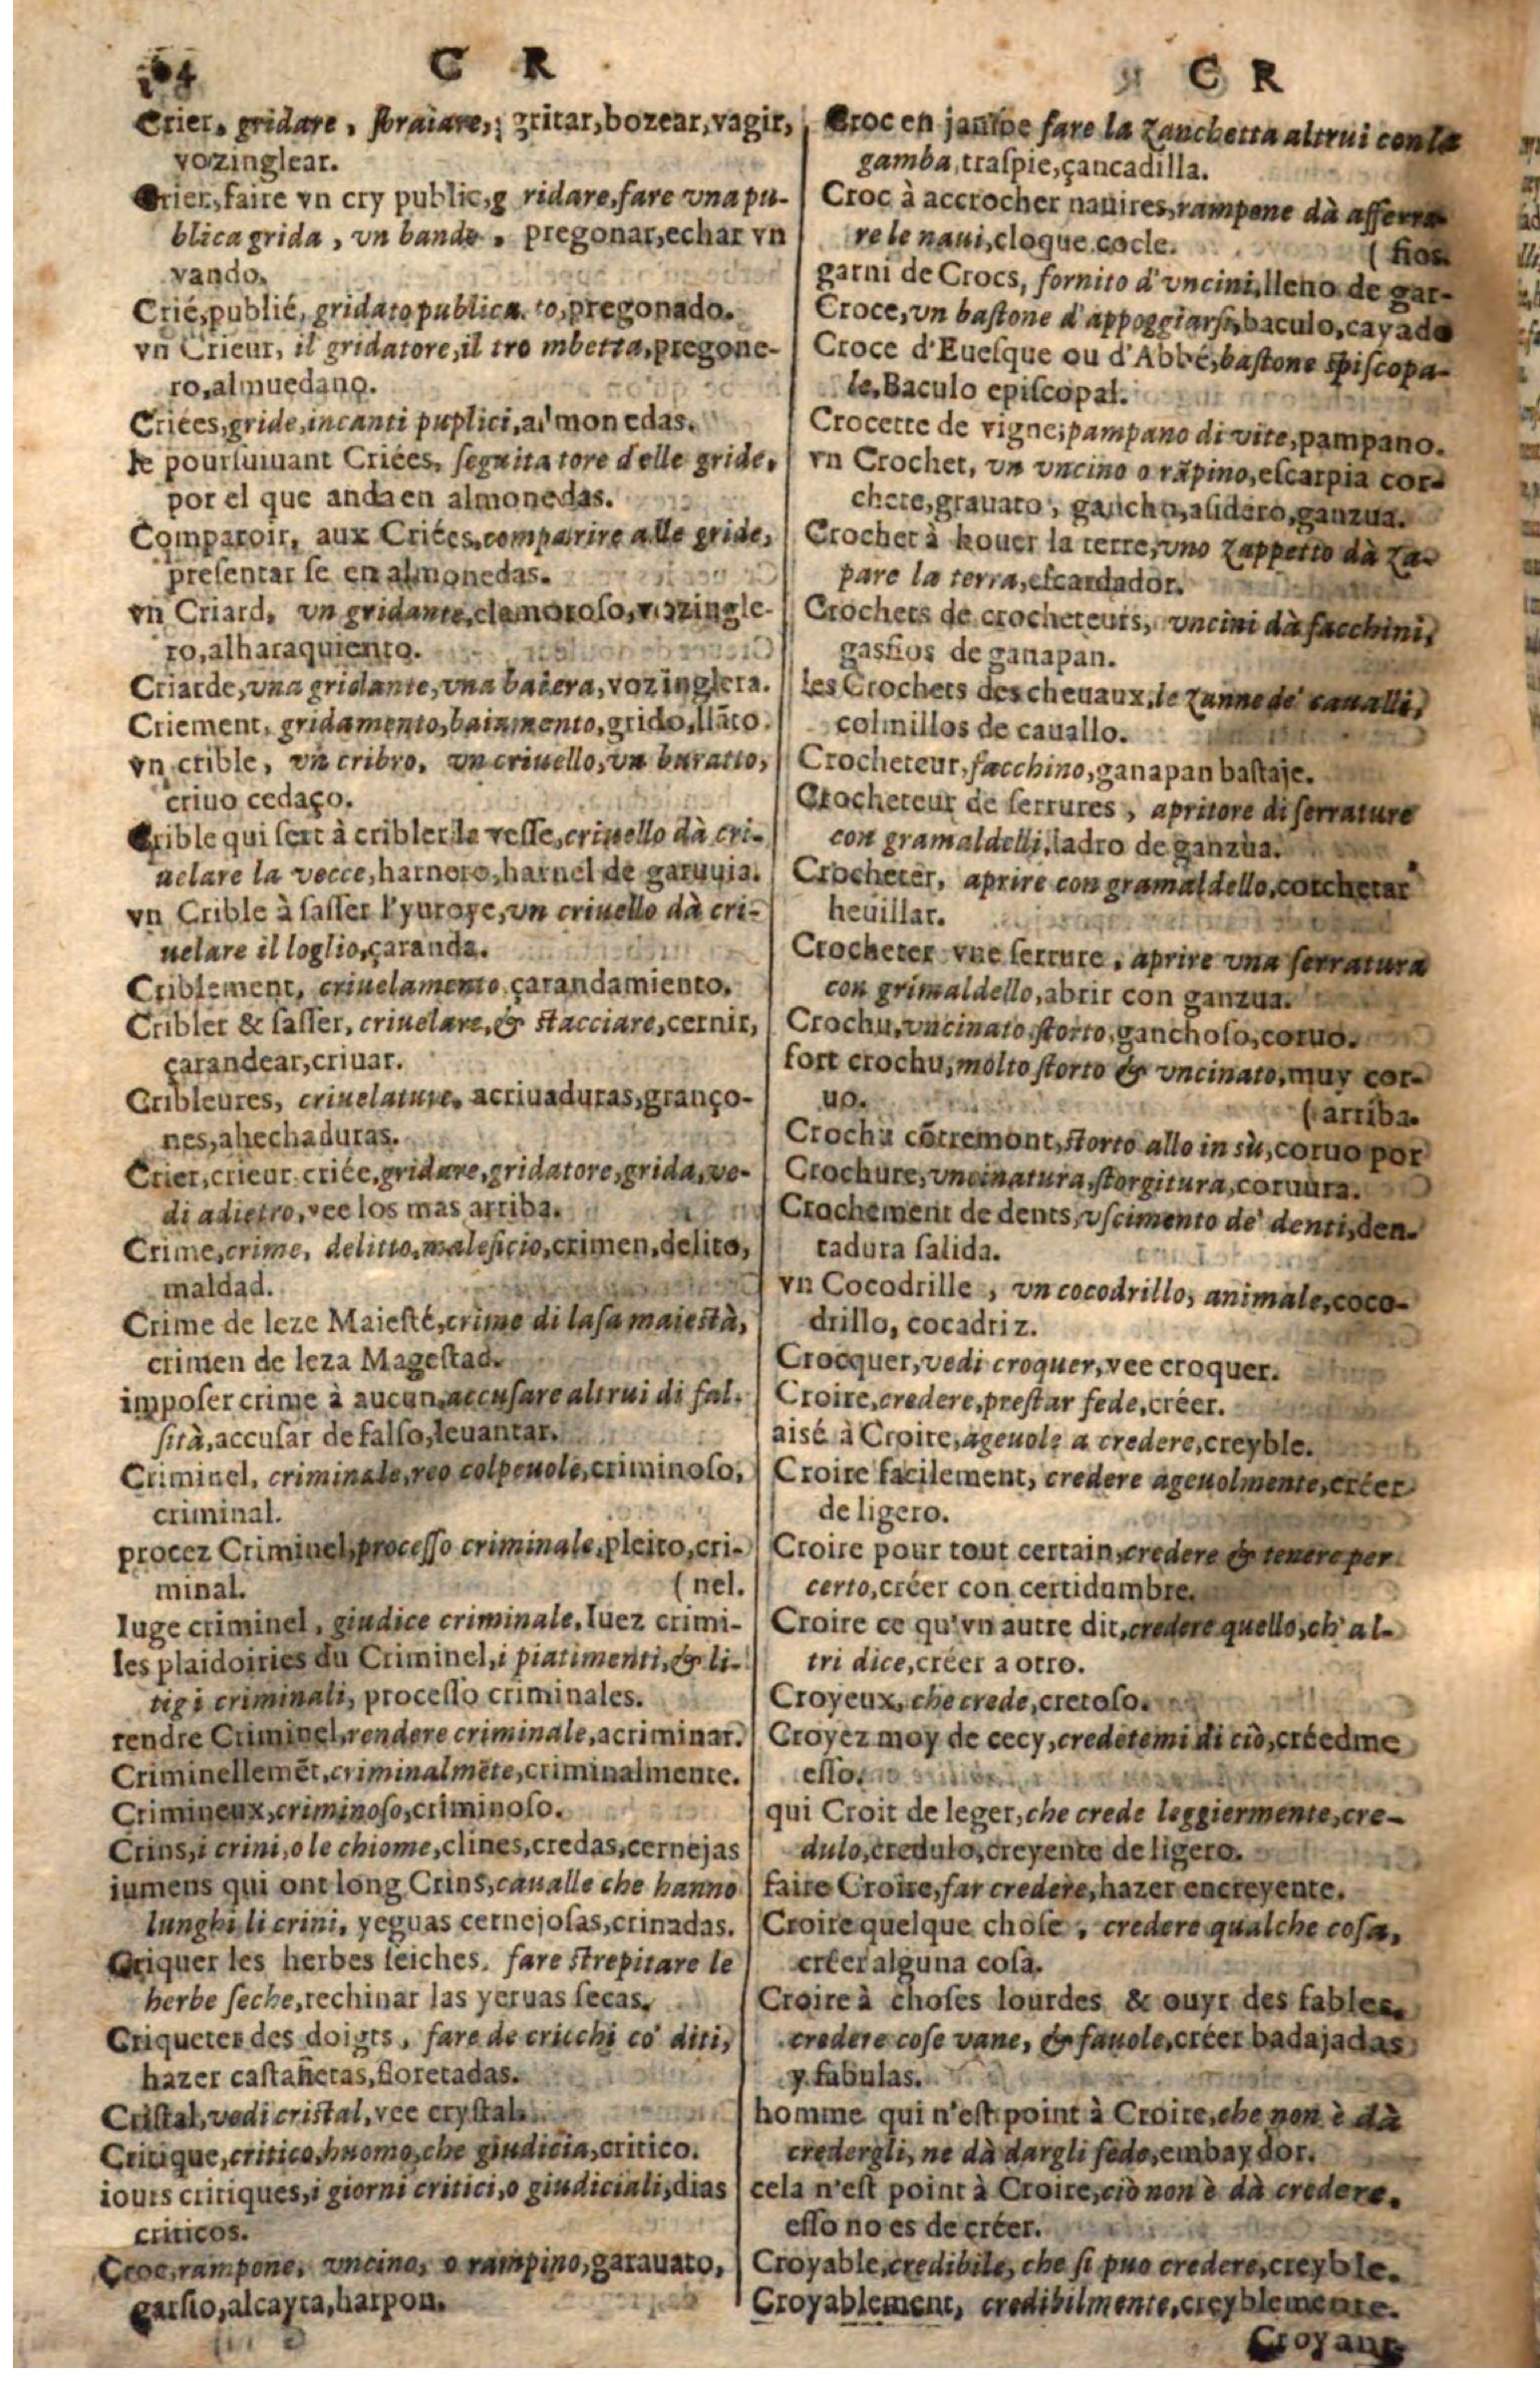 C R
Crier, gridare, sbraiare, gritar, bozear, vagir,
vozinglear.
Crier, faire vn cry public, g ridare, fare vna pu-
blica grida, vn bando, pregonar, echar vn
vando.
Crié, publié, gridato publica to, pregonado.
vn Crieur, il gridatore, il tro mbetta, pregone-
ro, almuedano.
Criées, gride, incanti puplici, al mon edas.
le poursuiuant Criées, seguita tore delle gride,
por el que anda en almonedas.
Comparoir, aux Criées, comparire alle gride,
presentar se en almonedas.
vn Criard, vn gridante, clamoroso, vozingle-
ro, alharaquiento.
Criarde, vna gridante, vna baiera, vozinglera.
Criement, gridamento, baiamento, grido, llāto.
vn crible, vn cribro, vn criuello, vn buratto,
criuo cedaço.
Crible qui sert à cribler la vesse, criuello dà cri-
uelare la vecce, harnero, harnel de garuuia.
vn Crible à sasser l'yuroye, vn criuello dà cri-
uelare il loglio, çaranda.
Criblement, criuelamento çarandamiento.
Cribler & sasser, criuelare, & stacciare, cernir,
çarandear, criuar.
Cribleures, criuelature, acriuaduras, granço-
nes, ahechaduras.
Crier, crieur, criée, gridare, gridatore, grida, ve-
di adietro, vee los mas arriba.
Crime, crime, delitto, maleficio, crimen, delito,
maldad.
Crime de leze Maiesté, crime di lasa maiestà,
crimen de leza Magestad.
imposer crime à aucun, accusare altrui di fal-
sità, accusar de falso, leuantar.
Criminel, criminale, reo colpeuole, criminoso,
criminal.
procez Criminel, processo criminale, pleito, cri-
minal. ( nel.
Iuge criminel, giudice criminale, Iuez crimi-
les plaidoiries du Criminel, i piatimenti, & li-
tigi criminali, processo criminales.
rendre Criminel, rendere criminale, acriminar.
Criminellemēt, criminalmēte, criminalmente.
Crimineux, criminoso, criminoso.
Crins, i crini, o le chiome, clines, credas, cernejas
iumens qui ont long Crins, caualle che hanno
lunghi li crini, yeguas cernejosas, crinadas.
Criquer les herbes seiches, fare strepitare le
herbe seche, rechinar las yeruas secas.
Criqueter des doigts, fare de cricchi co' diti,
hazer castañetas, floretadas.
Cristal, vedi cristal, vee crystal.
Critique, critico, huomo, che giudicia, critico.
iours critiques, i giorni critici, o giudiciali, dias
criticos.
Croc, rampone, vncino, o rampino, garauato,
garfio, alcayta, harpon.
C R
Croc en jambe fare la zanchetta altrui con la
gamba, traspie, çancadilla.
Croc à accrocher nauires, rampone dà afferra
re le naui, cloque cocle. ( fios.
garni de Crocs, fornito d'vncini, lleno de gar-
Croce, vn bastone d'appoggiarsi, baculo, cayado
Croce d'Euesque ou d'Abbé, bastone episcopa-
le, Baculo episcopal.
Crocette de vigne; pampano di vite, pampano.
vn Crochet, vn vncino o rāpino, escarpia cor-
chete, grauato, gancho, asidero, ganzua.
Crochet à houer la terre, vno zappetto dà za-
pare la terra, escardador.
Crochets de crocheteurs, vncini dà facchini,
gasfios de ganapan.
les Crochets des cheuaux, le zanne de' caualli,
colmillos de cauallo.
Crocheteur, facchino, ganapan bastaje.
Crocheteur de serrures, apritore di serrature
con gramaldelli, ladro de ganzùa.
Crocheter, aprire con gramaldello, corchetar
heuillar.
Crocheter vne serrure, aprire vna serratura
con grimaldello, abrir con ganzua.
Crochu, vncinato, storto, ganchoso, coruo.
fort crochu, molto storto & vncinato, muy cor-
uo. ( arriba.
Crochu cōtremont, storto allo in sù, coruo por
Crochure, vncinatura, storgitura, coruura.
Crochement de dents, vscimento de' denti, den-
tadura salida.
vn Cocodrille, vn cocodrillo, animale, coco-
drillo, cocadriz.
Crocquer, vedi croquer, vee croquer.
Croire, credere, prestar fede, créer.
aisé à Croire, ageuole a credere, creyble.
Croire facilement, credere ageuolmente, créer
de ligero.
Croire pour tout certain, credere & tenere per
certo, créer con certidumbre.
Croire ce qu'vn autre dit, credere quello, ch' al-
tri dice, créer a otro.
Croyeux, che crede, cretoso.
Croyez moy de cecy, credetemi di ciò, créedme
esso.
qui Croit de leger, che crede leggiermente, cre-
dulo, credulo, creyente de ligero.
faire Croire, far credere, hazer encreyente.
Croire quelque chose, credere qualche cosa,
créer alguna cosa.
Croire à choses lourdes & ouyr des fables,
credere cose vane, & fauole, créer badajadas
y fabulas.
homme qui n'est point à Croire, che non è dà
credergli, ne dà dargli fede, embaydor.
cela n'est point à Croire, ciò non è dà credere,
esso no es de créer.
Croyable, credibile, che si puo credere, creyble.
Croyablement, credibilmente, creyblemente.
Croyant